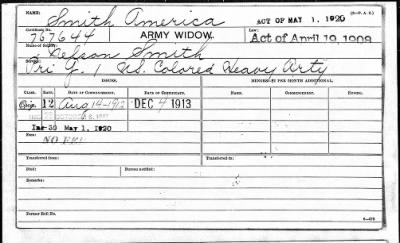 NAME: Smith America ACT OF MAY 1, 1920 (S.—P. A. C.)
Certificate No. 757644 ARMY WIDOW. Law: Act of April 19, 1908
Name of Soldier: Nelson Smith
Service: Pri G. 1 U.S. Colored Heavy Arty
ISSUES. MINORS—$2 PER MONTH ADDITIONAL.
CLASS. RATE. DATE OF COMMENCEMENT. DATE OF CERTIFICATE. NAME. DATE OF COMMENCEMENT.
Orig. 12 Aug 14-1912 DEC 4 1913
INC. 25 OCTOBER 6, 1917
Inc-30 May 1, 1920
NO FEE
Transferred from: Transferred to:
Died: Bureau notified:
Remarks:
Former Roll No.